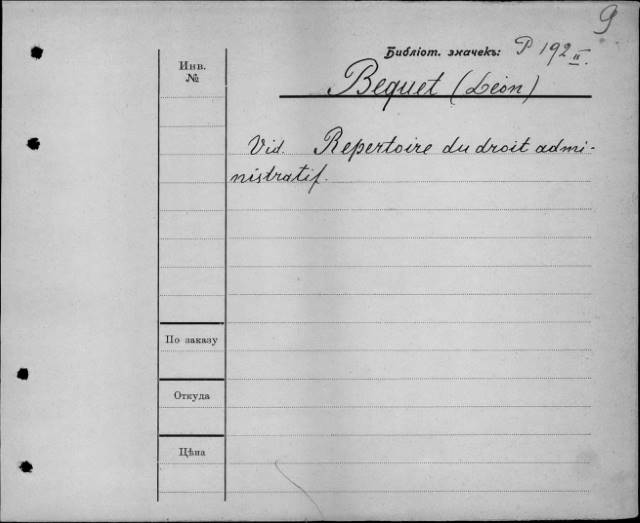 9
Библіот. значекъ: P 192 II.
Инв. №
Bequet (Léon)
Vid. Repertoire du droit admi-
nistratif.
По заказу
Откуда
Цѣна